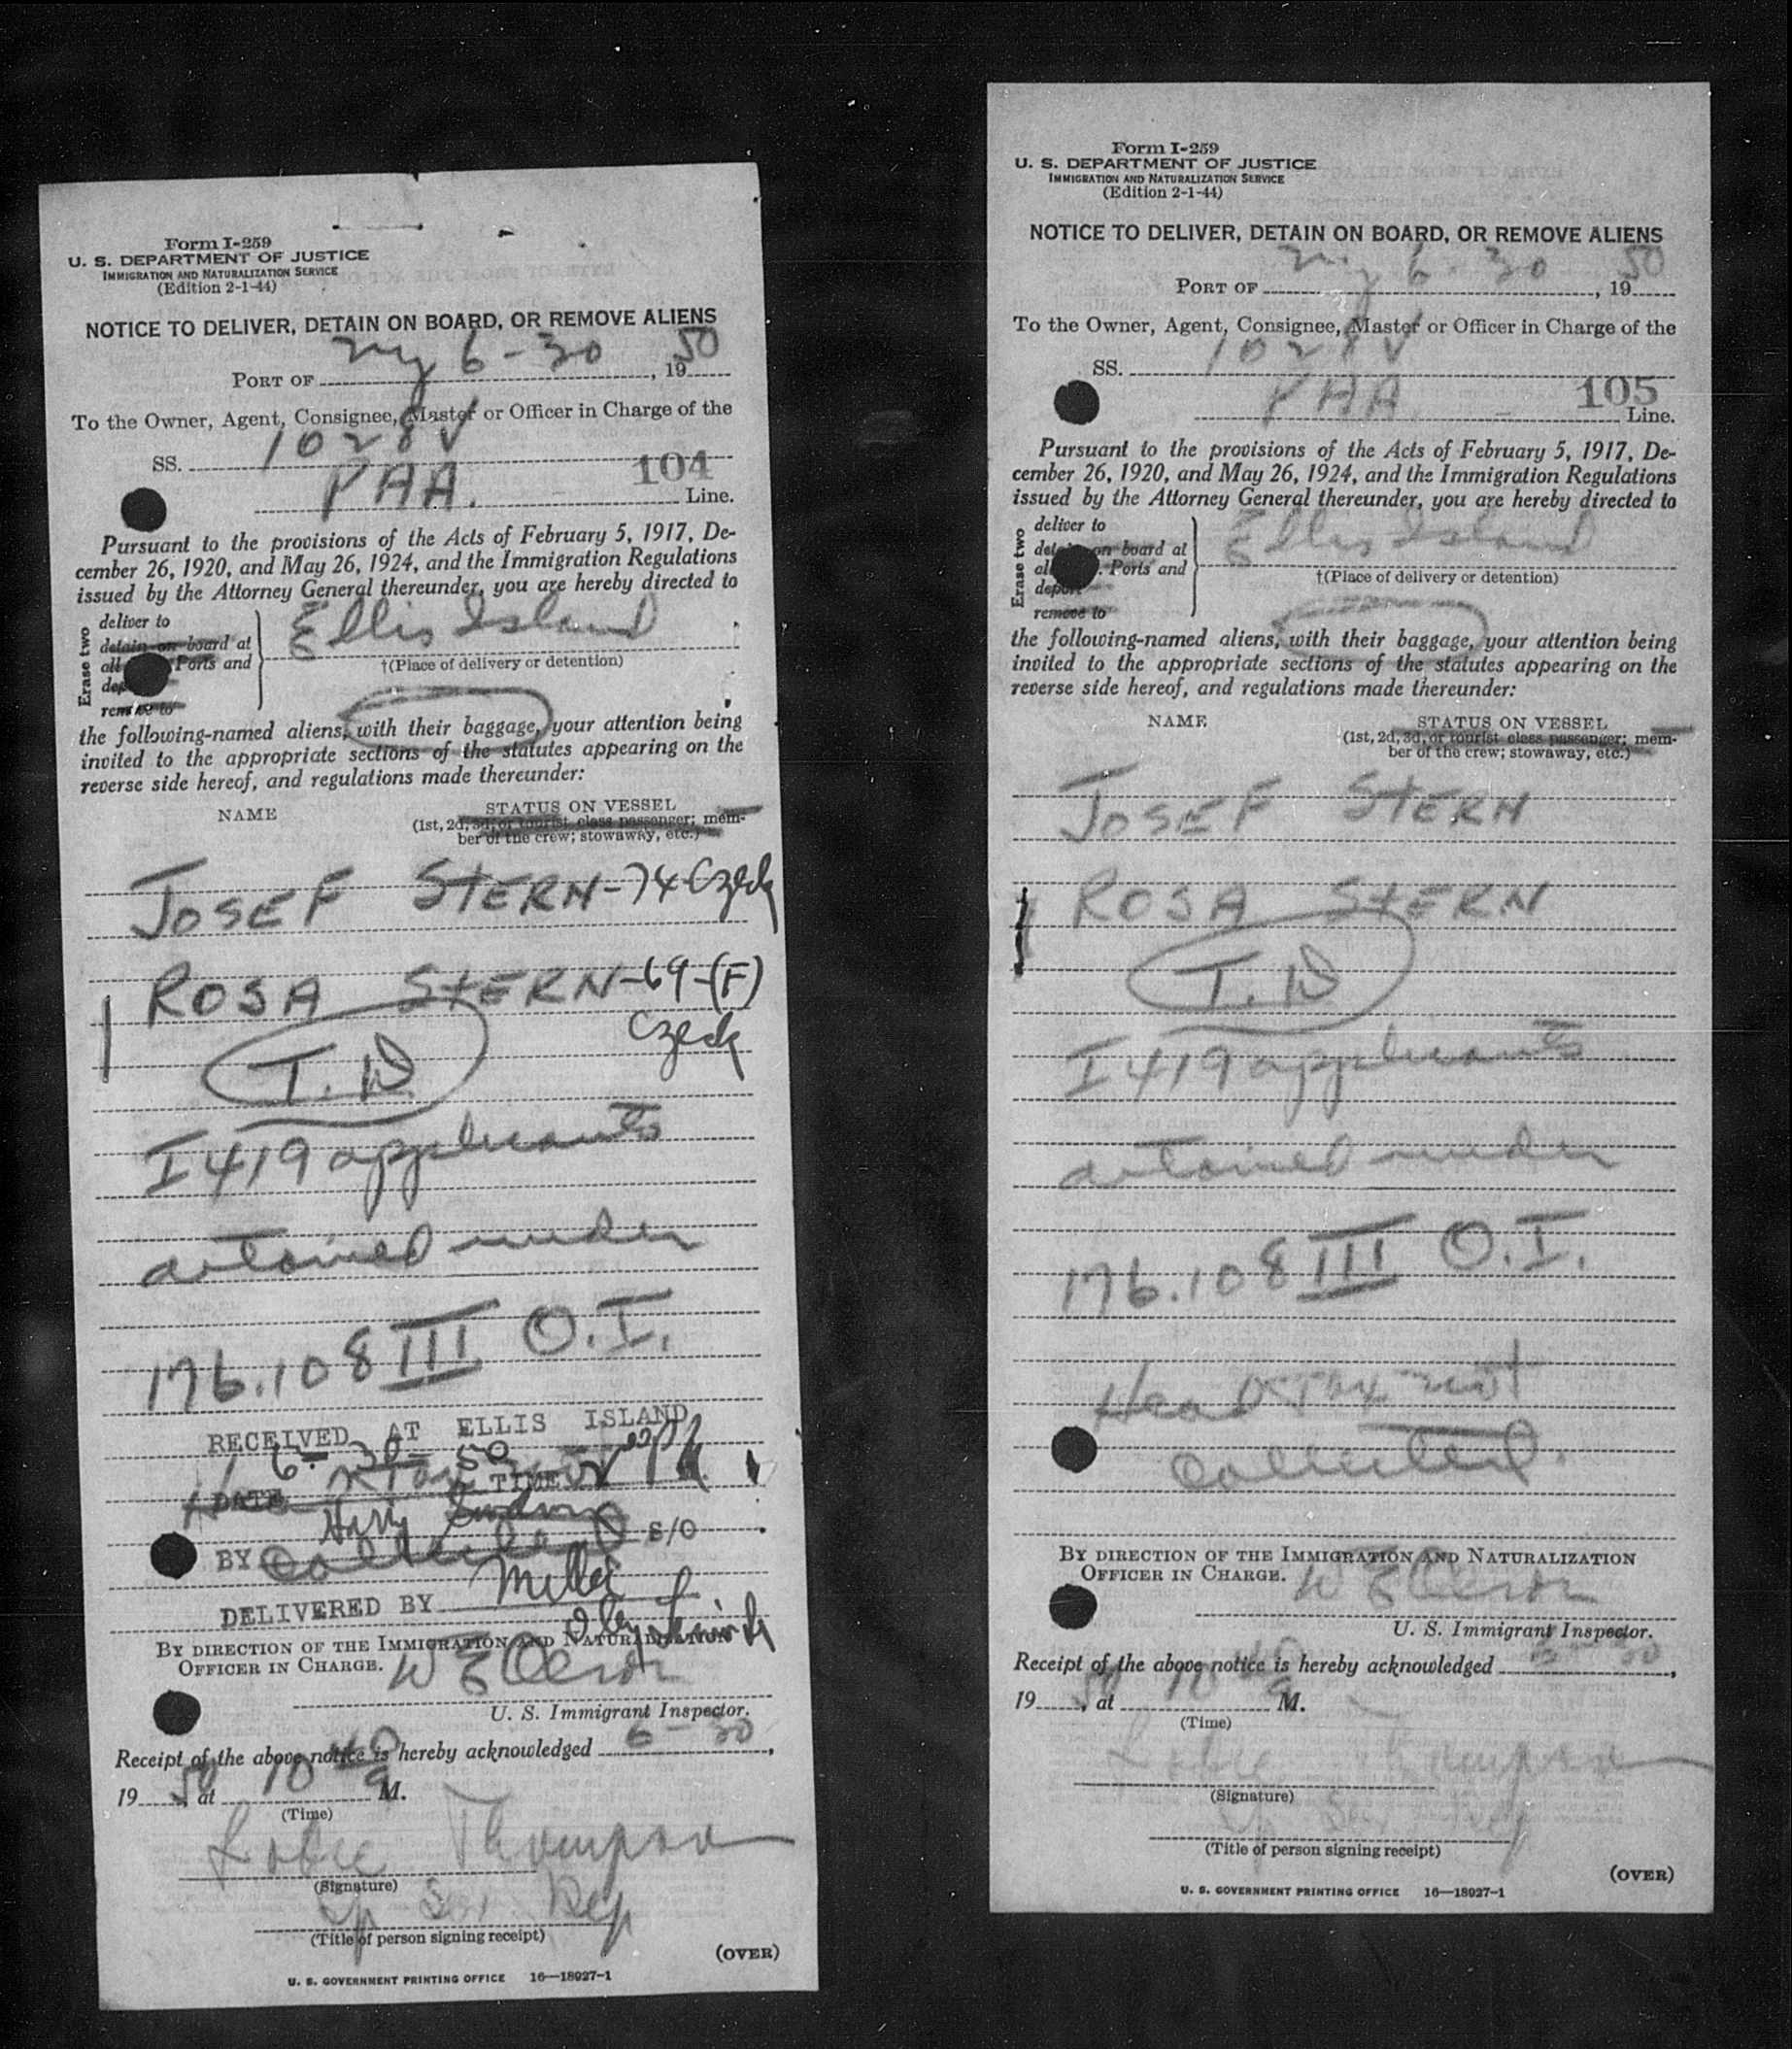 Form I-259
U. S. DEPARTMENT OF JUSTICE
IMMIGRATION AND NATURALIZATION SERVICE
(Edition 2-1-44)
NOTICE TO DELIVER, DETAIN ON BOARD, OR REMOVE ALIENS
PORT OF NY 6-30, 1950
To the Owner, Agent, Consignee, Master or Officer in Charge of the
SS. 1028V
PAA. 104 Line.
Pursuant to the provisions of the Acts of February 5, 1917, De-
cember 26, 1920, and May 26, 1924, and the Immigration Regulations
issued by the Attorney General thereunder, you are hereby directed to
Erase two
deliver to
detain on board at
all Ports and
remove to
Ellis Island
†(Place of delivery or detention)
the following-named aliens, with their baggage, your attention being
invited to the appropriate sections of the statutes appearing on the
reverse side hereof, and regulations made thereunder:
NAME STATUS ON VESSEL
(1st, 2d, 3d, or tourist class passenger; mem-
ber of the crew; stowaway, etc.)
JOSEF STERN-74-Czech
ROSA STERN-69-(F)
Czech
T.D.
I 419 applicants
detained under
176.108 III O.I.
RECEIVED AT ELLIS ISLAND
6-30-50
DATE TIME
Harry
BY collected S/O
DELIVERED BY Miller
BY DIRECTION OF THE IMMIGRATION AND NATURALIZATION
OFFICER IN CHARGE. W E Olson
U. S. Immigrant Inspector.
Receipt of the above notice is hereby acknowledged 6-30,
1950, at 10 40 a M.
(Time)
Thompson
(Signature)
Rep
(Title of person signing receipt)
(OVER)
U. S. GOVERNMENT PRINTING OFFICE 16—18927-1
Form I-259
U. S. DEPARTMENT OF JUSTICE
IMMIGRATION AND NATURALIZATION SERVICE
(Edition 2-1-44)
NOTICE TO DELIVER, DETAIN ON BOARD, OR REMOVE ALIENS
PORT OF NY 6-30, 1950
To the Owner, Agent, Consignee, Master or Officer in Charge of the
SS. 1028V
PAA 105 Line.
Pursuant to the provisions of the Acts of February 5, 1917, De-
cember 26, 1920, and May 26, 1924, and the Immigration Regulations
issued by the Attorney General thereunder, you are hereby directed to
Erase two
deliver to
on board at
Ports and
remove to
Ellis Island
†(Place of delivery or detention)
the following-named aliens, with their baggage, your attention being
invited to the appropriate sections of the statutes appearing on the
reverse side hereof, and regulations made thereunder:
NAME STATUS ON VESSEL
(1st, 2d, 3d, or tourist class passenger; mem-
ber of the crew; stowaway, etc.)
JOSEF STERN
ROSA STERN
T.D.
I 419 applicants
detained under
176.108 III O.I.
Head Tax not
collected.
BY DIRECTION OF THE IMMIGRATION AND NATURALIZATION
OFFICER IN CHARGE. W E Olson
U. S. Immigrant Inspector.
Receipt of the above notice is hereby acknowledged 6-30,
1950, at 10 40 a M.
(Time)
Thompson
(Signature)
Rep
(Title of person signing receipt)
(OVER)
U. S. GOVERNMENT PRINTING OFFICE 16—18927-1